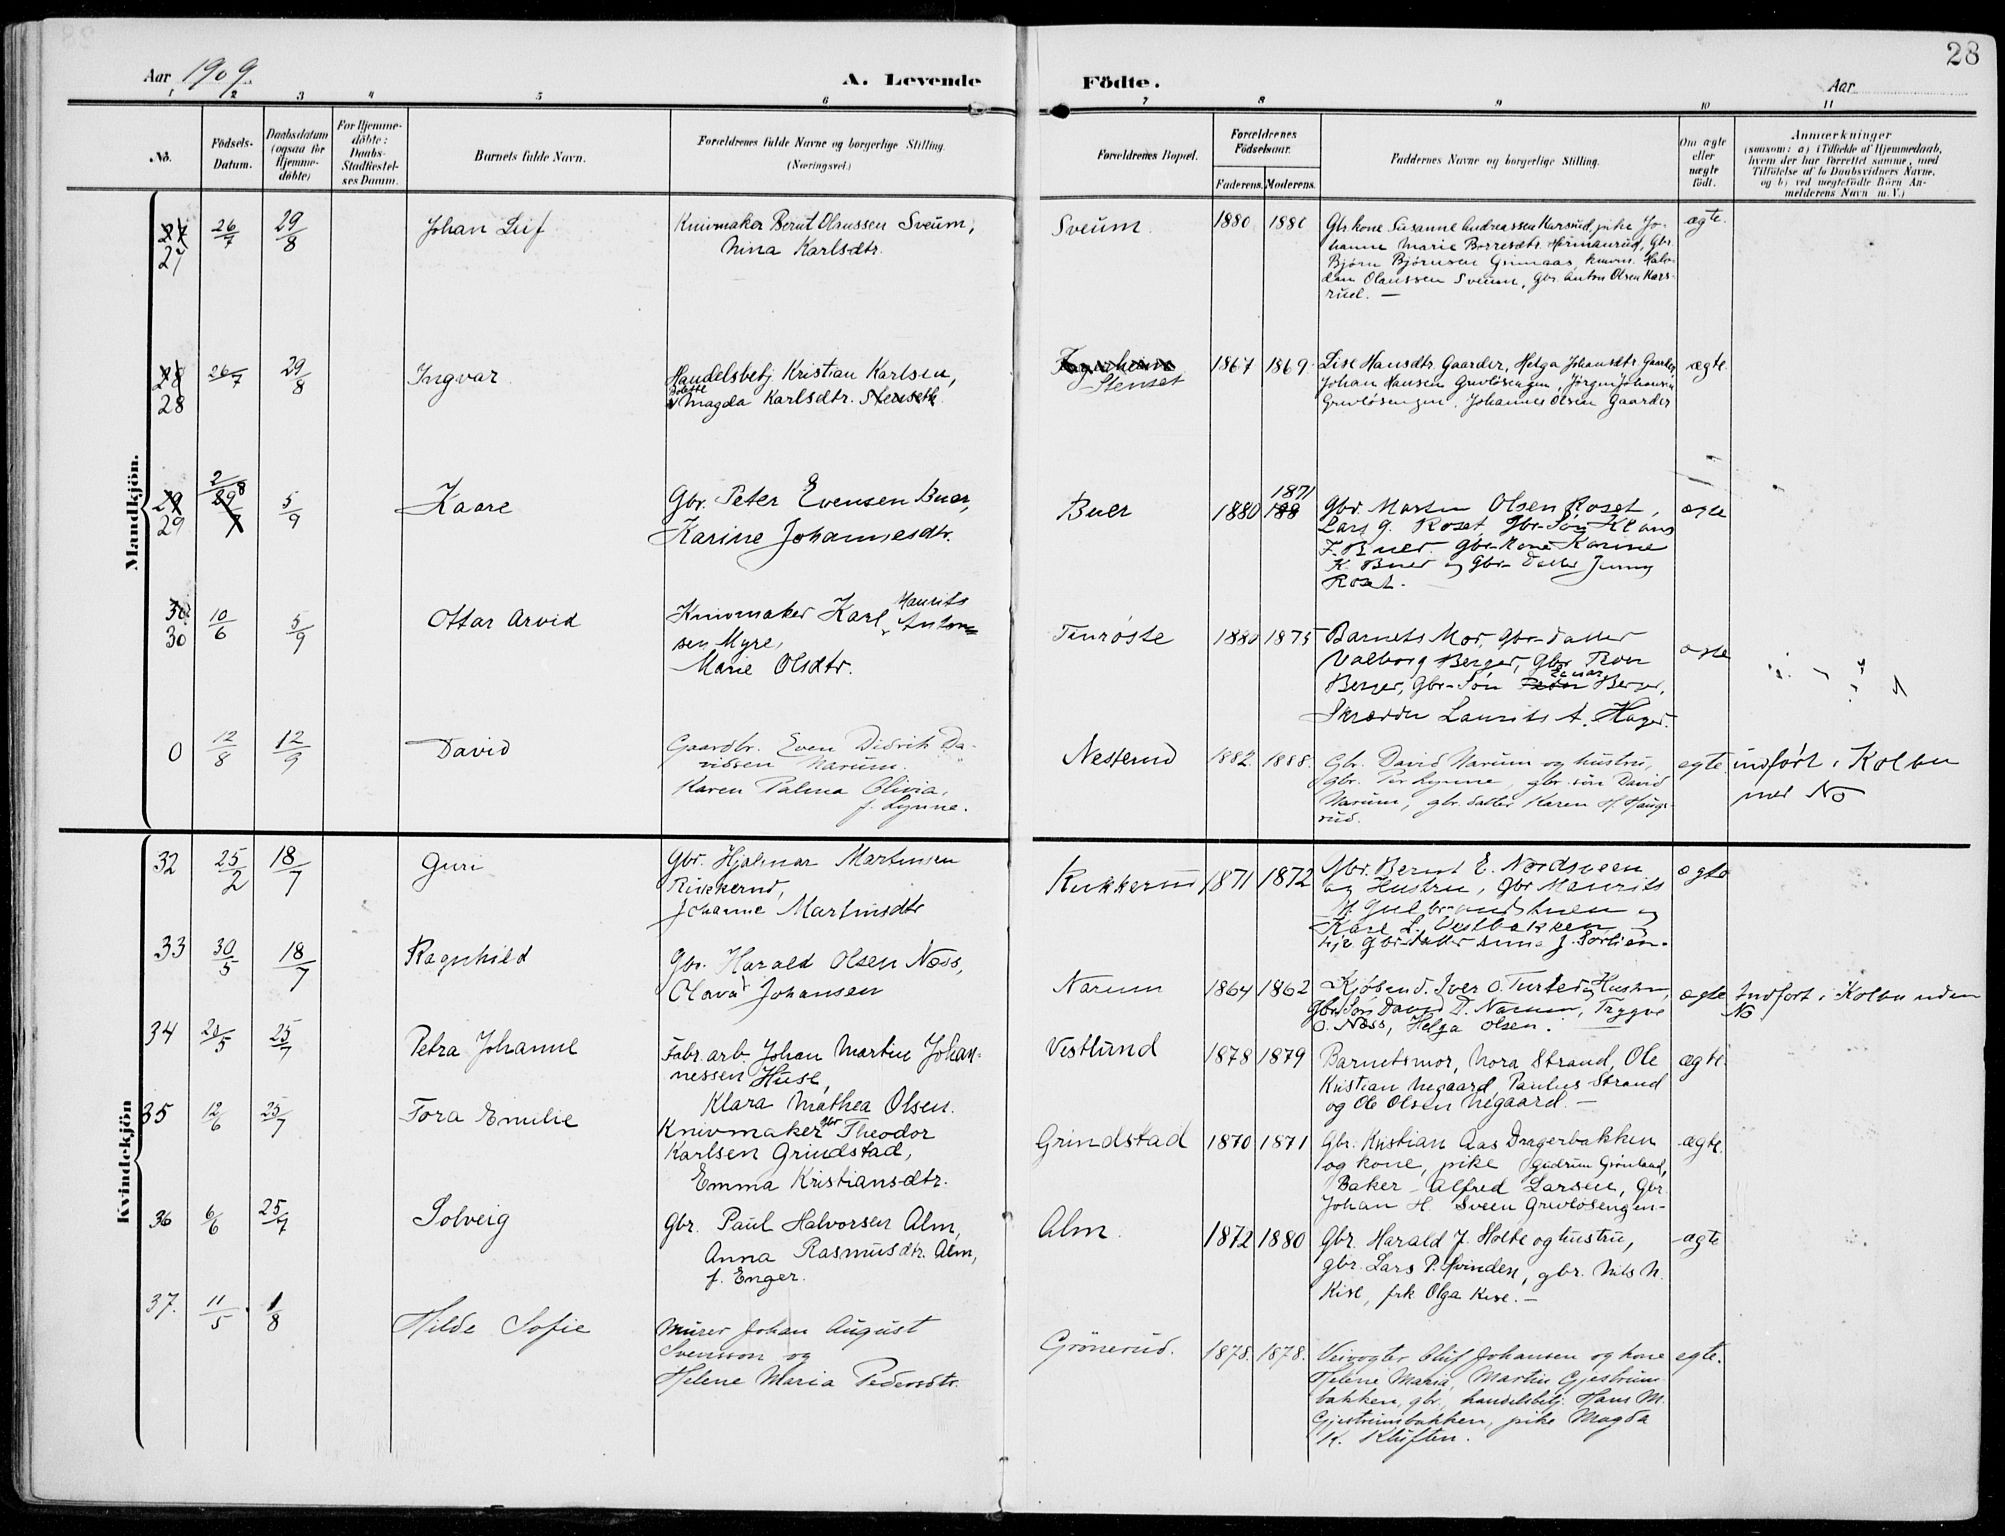 28
Aar 1909
A. Levende Födte.
Aar
1 2 3 4 5 6 7 8 9 10 11
No.
Födsels-
Datum.
Daabsdatum
(ogsaa for
Hjemme-
döbte)
For Hjemme-
döbte:
Daabs-
Stadfæstel-
ses Datum.
Barnets fulde Navn.
Forældrenes fulde Navne og borgerlige Stilling.
(Næringsvei.)
Forældrenes Bopæl.
Forældrenes
Födselsaar.
Faderens.
Moderens.
Faddernes Navne og borgerlige Stilling.
Om ægte
eller
uægte
född.
Anmærkninger
(saasom: a) i Tilfælde af Hjemmedaab,
hvem der har forrettet samme, med
Tilföielse af to Daabsvidners Navne,
og b) ved uægtefödte Börn An-
melderens Navn m. V.)
Mandkjön.
27
27
26/7
29/8
Johan Leif
Knivmaker Bernt Olaussen Sveum,
Nina Karlsdtr.
Sveum.
1880
1880
Gbr kone Susanne Andreassen Karsrud, pike Jo-
hanne Marie Borresdtr. Hermanrud, Gbr.
Bjørn Bjørnsen Grinaas, knivm. Halv-
dan Olaussen Sveum, Gbr. Anton Olsen Kars-
rud. —
ægte.
28
28
26/7
29/8
Ingvar
Handelsbetj Kristian Karlsen,
Bolette
Magda Karlsdtr. Stenseth.
Stenset
1867
1869.
Lise Hansdtr. Gaarder, Helga Johansdtr. Gaarder,
Johan Hansen Grevløsengen, Jørgen Johansen
Grevløsengen, Johannes Olsen Gaarder
ægte
29
29
2/8
29/7
5/9
Kaare
Gbr. Peter Evensen Buer,
Karine Johannesdtr.
Buer
1880
1871
188
Gbr. Marten Olsen Roset,
Lars G. Roset, Gbr-Søn Klaus
F. Buer. Gbr-Kone Karine
K. Buer og Gbr-Datter Jenny
Roset.
ægte
30
30
10/6
5/9
Ottar Arvid
Maurits
Knivmaker Karl Anton
sen Myre,
Marie Olsdtr.
Finrøste
1880
1875
Barnets Mor, Gbr-Datter
Valborg Berger, Gbr.
Einar
Berger, Gbr-Søn Peder Berger,
Skrædder Laurits A. Hager.
ægte
0
12/8
12/9
David
Gaardbr. Even Didrik Da-
vidsen Narum.
Karen Palma Olivia,
f. Lynne.
Nesterud
1882.
1888.
Gbr. David Narum og hustru,
gbr. Per Lynne, gbr. søn David
Narum, gbr. datter Karen H. Haugs-
rud.
egte.
indført i Kolbu
med No
Kvindekjön
32
25/2
18/7
Guri
Gbr. Hjalmar Martinsen
Rukkerud,
Johanne Martinsdtr
Rukkerud
1871
1872
Gbr. Bernt E. Nordsveen
og Hustru, Gbr Maurits
M. Gulbrandshuen og
Karl L. Vestbakken
ægte
33
30/5
18/7
Ragnhild
Gbr. Harald Olsen Næss,
Olava Johansen
Narum
1864
1862
Kjøbmd. Iver O. Turterog Hustru,
Gbr Søn David D. Narum, Trygve
O. Næss, Helga Olsen.
ægte
Indført i Kolbu uden
No
34
23/5
25/7
Petra Johanne
Fabr. arb. Johan Martin Johan-
nessen Huse,
Klara Mathea Olsen.
Vestlund
1878
1879
Barnetsmor, Nora Strand, Ole
Kristian Negaard, Paulus Strand
og Ole Olsen Negaard. —
ægte.
35
12/6
25/7
Tora Emilie
Knivmaker gbr Theodor
Karlsen Grindstad,
Emma Kristiansdtr.
Grindstad
1870
1871
Gbr. Kristian Aas Dragerbakken
og kone, pike Gudrun Grønland,
Baker — Alfred Larsen, Gbr.
Johan H. Sveen Grevløsengen-
ægte.
36
6/6
25/7
Solveig
Gbr. Paul Halvorsen Alm,
Anna Rasmusdtr. Alm,
f. Enger.
Alm.
1872
1880
Gbr. Harald J. Holte og hustru,
gbr. Lars P. Kvinden, gbr. Nils N.
Kise, frk Olga Kise. —
ægte
37.
11/5
1/8
Hilde Sofie
Murer Johan August
Svensson og
Helene Maria Pedersdtr.
Grönerud.
1878.
1878.
Veivogter Oluf Johansen og kone
Helene Maria, Martin Gjestrum-
bakken, gbr., handelsbetj. Hans M.
Gjestrumsbakken, pike Magda
K. Kluften.
egte.